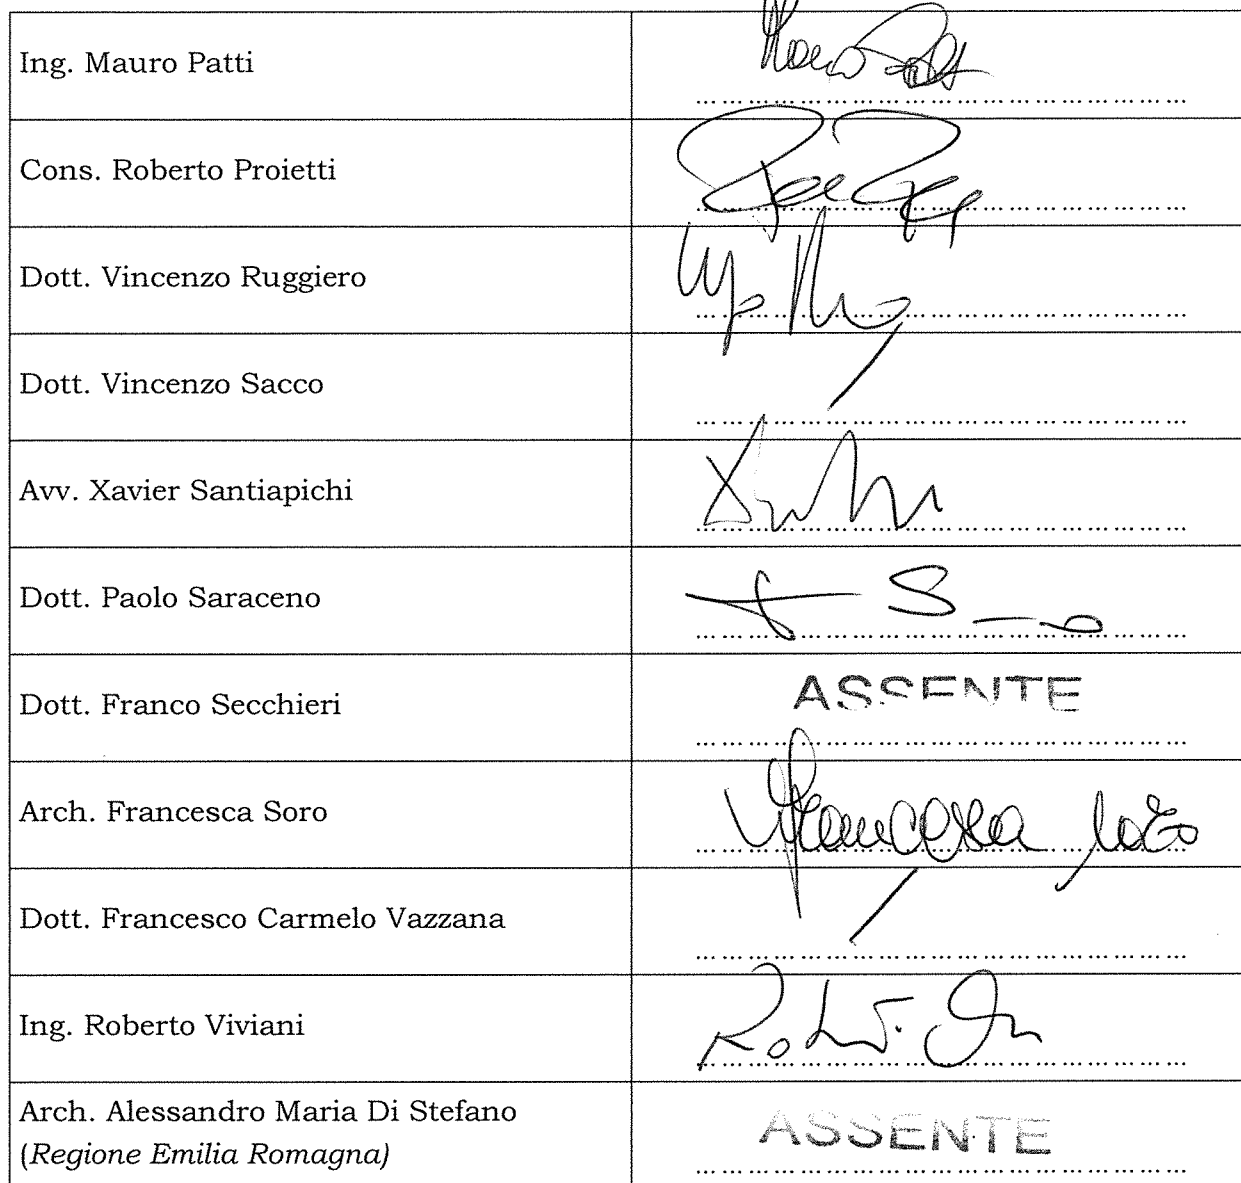 Ing. Mauro Patti
Cons. Roberto Proietti
Dott. Vincenzo Ruggiero
Dott. Vincenzo Sacco
Avv. Xavier Santiapichi
Dott. Paolo Saraceno
Dott. Franco Secchieri
ASSENTE
Arch. Francesca Soro
Francesca Soro
Dott. Francesco Carmelo Vazzana
Ing. Roberto Viviani
Arch. Alessandro Maria Di Stefano
(Regione Emilia Romagna)
ASSENTE